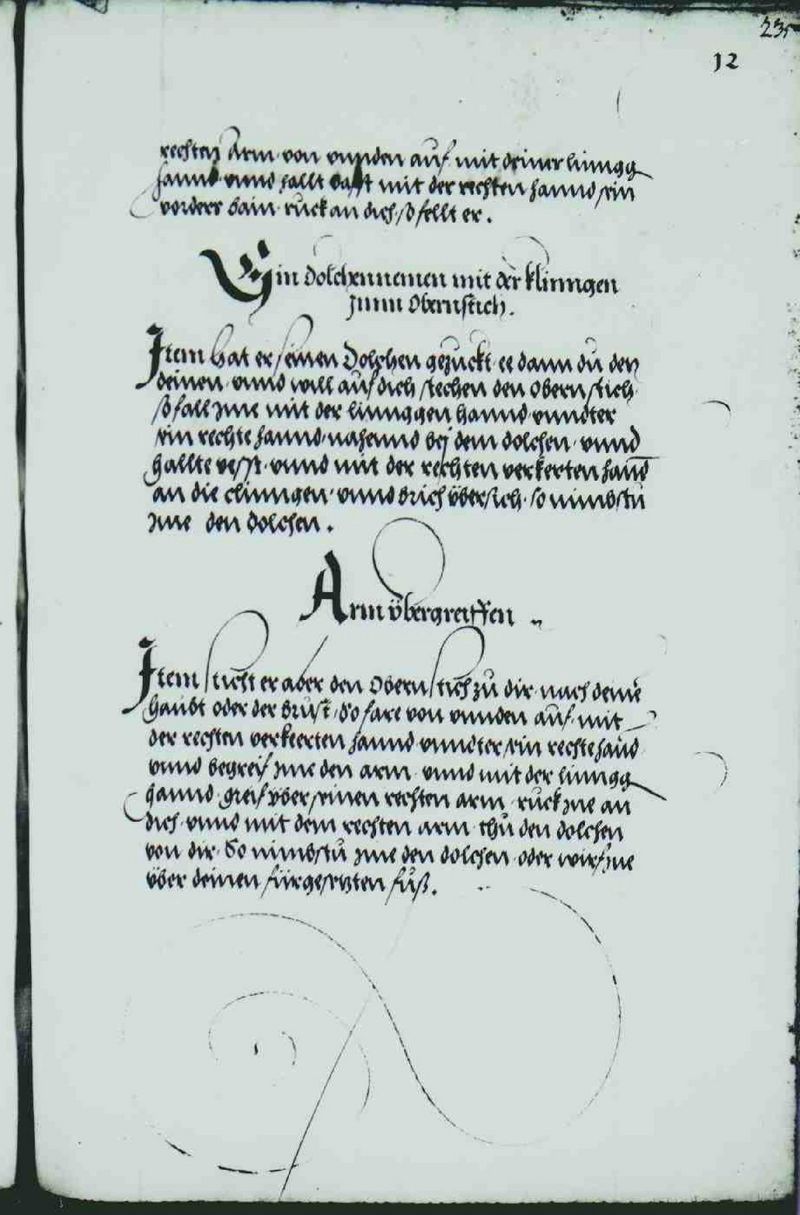 235
12
rechten Arm von vnnden auf mit deiner linngg
hannd vnnd fallt bast mit der rechten hannd sein
vorders bain ruck an dich so fellt er.
Ein dolchennemen mit der klinngen
zum Obernstich.
Item hat er seinen Dolchen gezuckt ee dann du den
deinen vnnd will auf dich stechen den Obern stich
so fall jme mit der linnggen hannd vnndter
sein rechte hannd nahennd bej dem dolchen vnnd
hallte vesst vnnd mit der rechten verkerten hannd
an die clinngen vnnd brich vbersich so nimbstu
jme den dolchen.
Arm vbergreiffen
Item sticht er aber den Obern stich zu dir nach deinē
haubt oder der brust so fare von vnnden auf mit
der rechten verkeerten hannd vnndter sein rechte hānd
vnnd begreif jme den arm vnnd mit der linngg
hannd greif vber seinen rechten arm ruck jne an
dich vnnd mit dem rechten arm thu den dolchen
von dir So nimbstu jme den dolchen oder wirf jne
vber deinen fürgesetzten fuß.